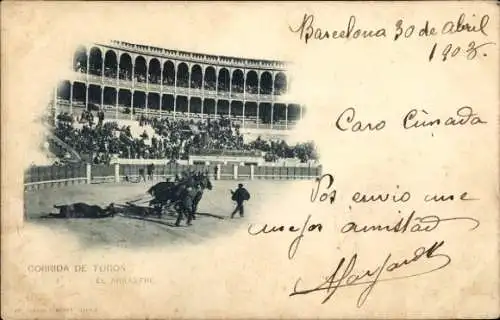 Barcelona 30 de Abril
1903.
Caro Cúnada
Vos envio me
mejor amistad
CORRIDA DE TOROS
EL ARRASTRE.